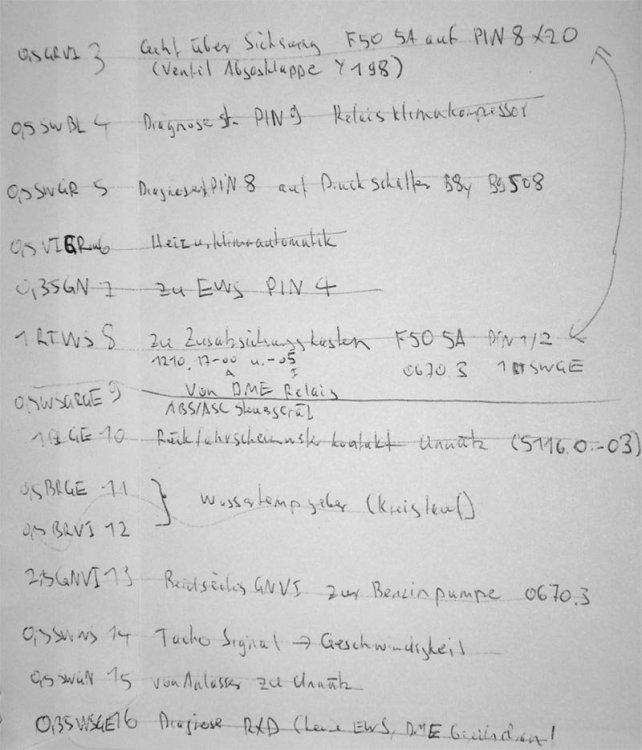 0,5GRVI 3 Geht über Sicherung F50 5A auf PIN 8 X20
(Ventil Abgasklappe Y198)
0,5 SWBL 4 Diagnose PIN 9 Relais klimakompressor
0,5 SWGR 5 PIN 8 auf Druckschalter B8y B9508
0,5 VIGR 6 Heizu.klimaautomatik
0,35GN 7 zu EWS PIN 4
1 RTWS 8 zu Zusabsichrungskasten F50 5A PIN 1/2
1210.17-00 u. -05 0670.3 1 RTSWGE
0,5WSGRGE 9 von DME Relais
ABS/ASC Steuergerät
GE 10 Rückfahrscheinwerfer kontakt Unnütz (5116.0.-03)
0,5BRGE 11
Wassertempgeber (Kreislauf)
0,5 BRVI 12
2,5GNVI 13 Beidseitig GNVI zur Benzinpumpe 0670.3
0,5SWWS 14 Tacho Signal → Geschwindigkeit
0,5 SWGN 15 von Anlasser zu Unnütz
0,35WSGE 16 Diagnose RXD EWS, DME